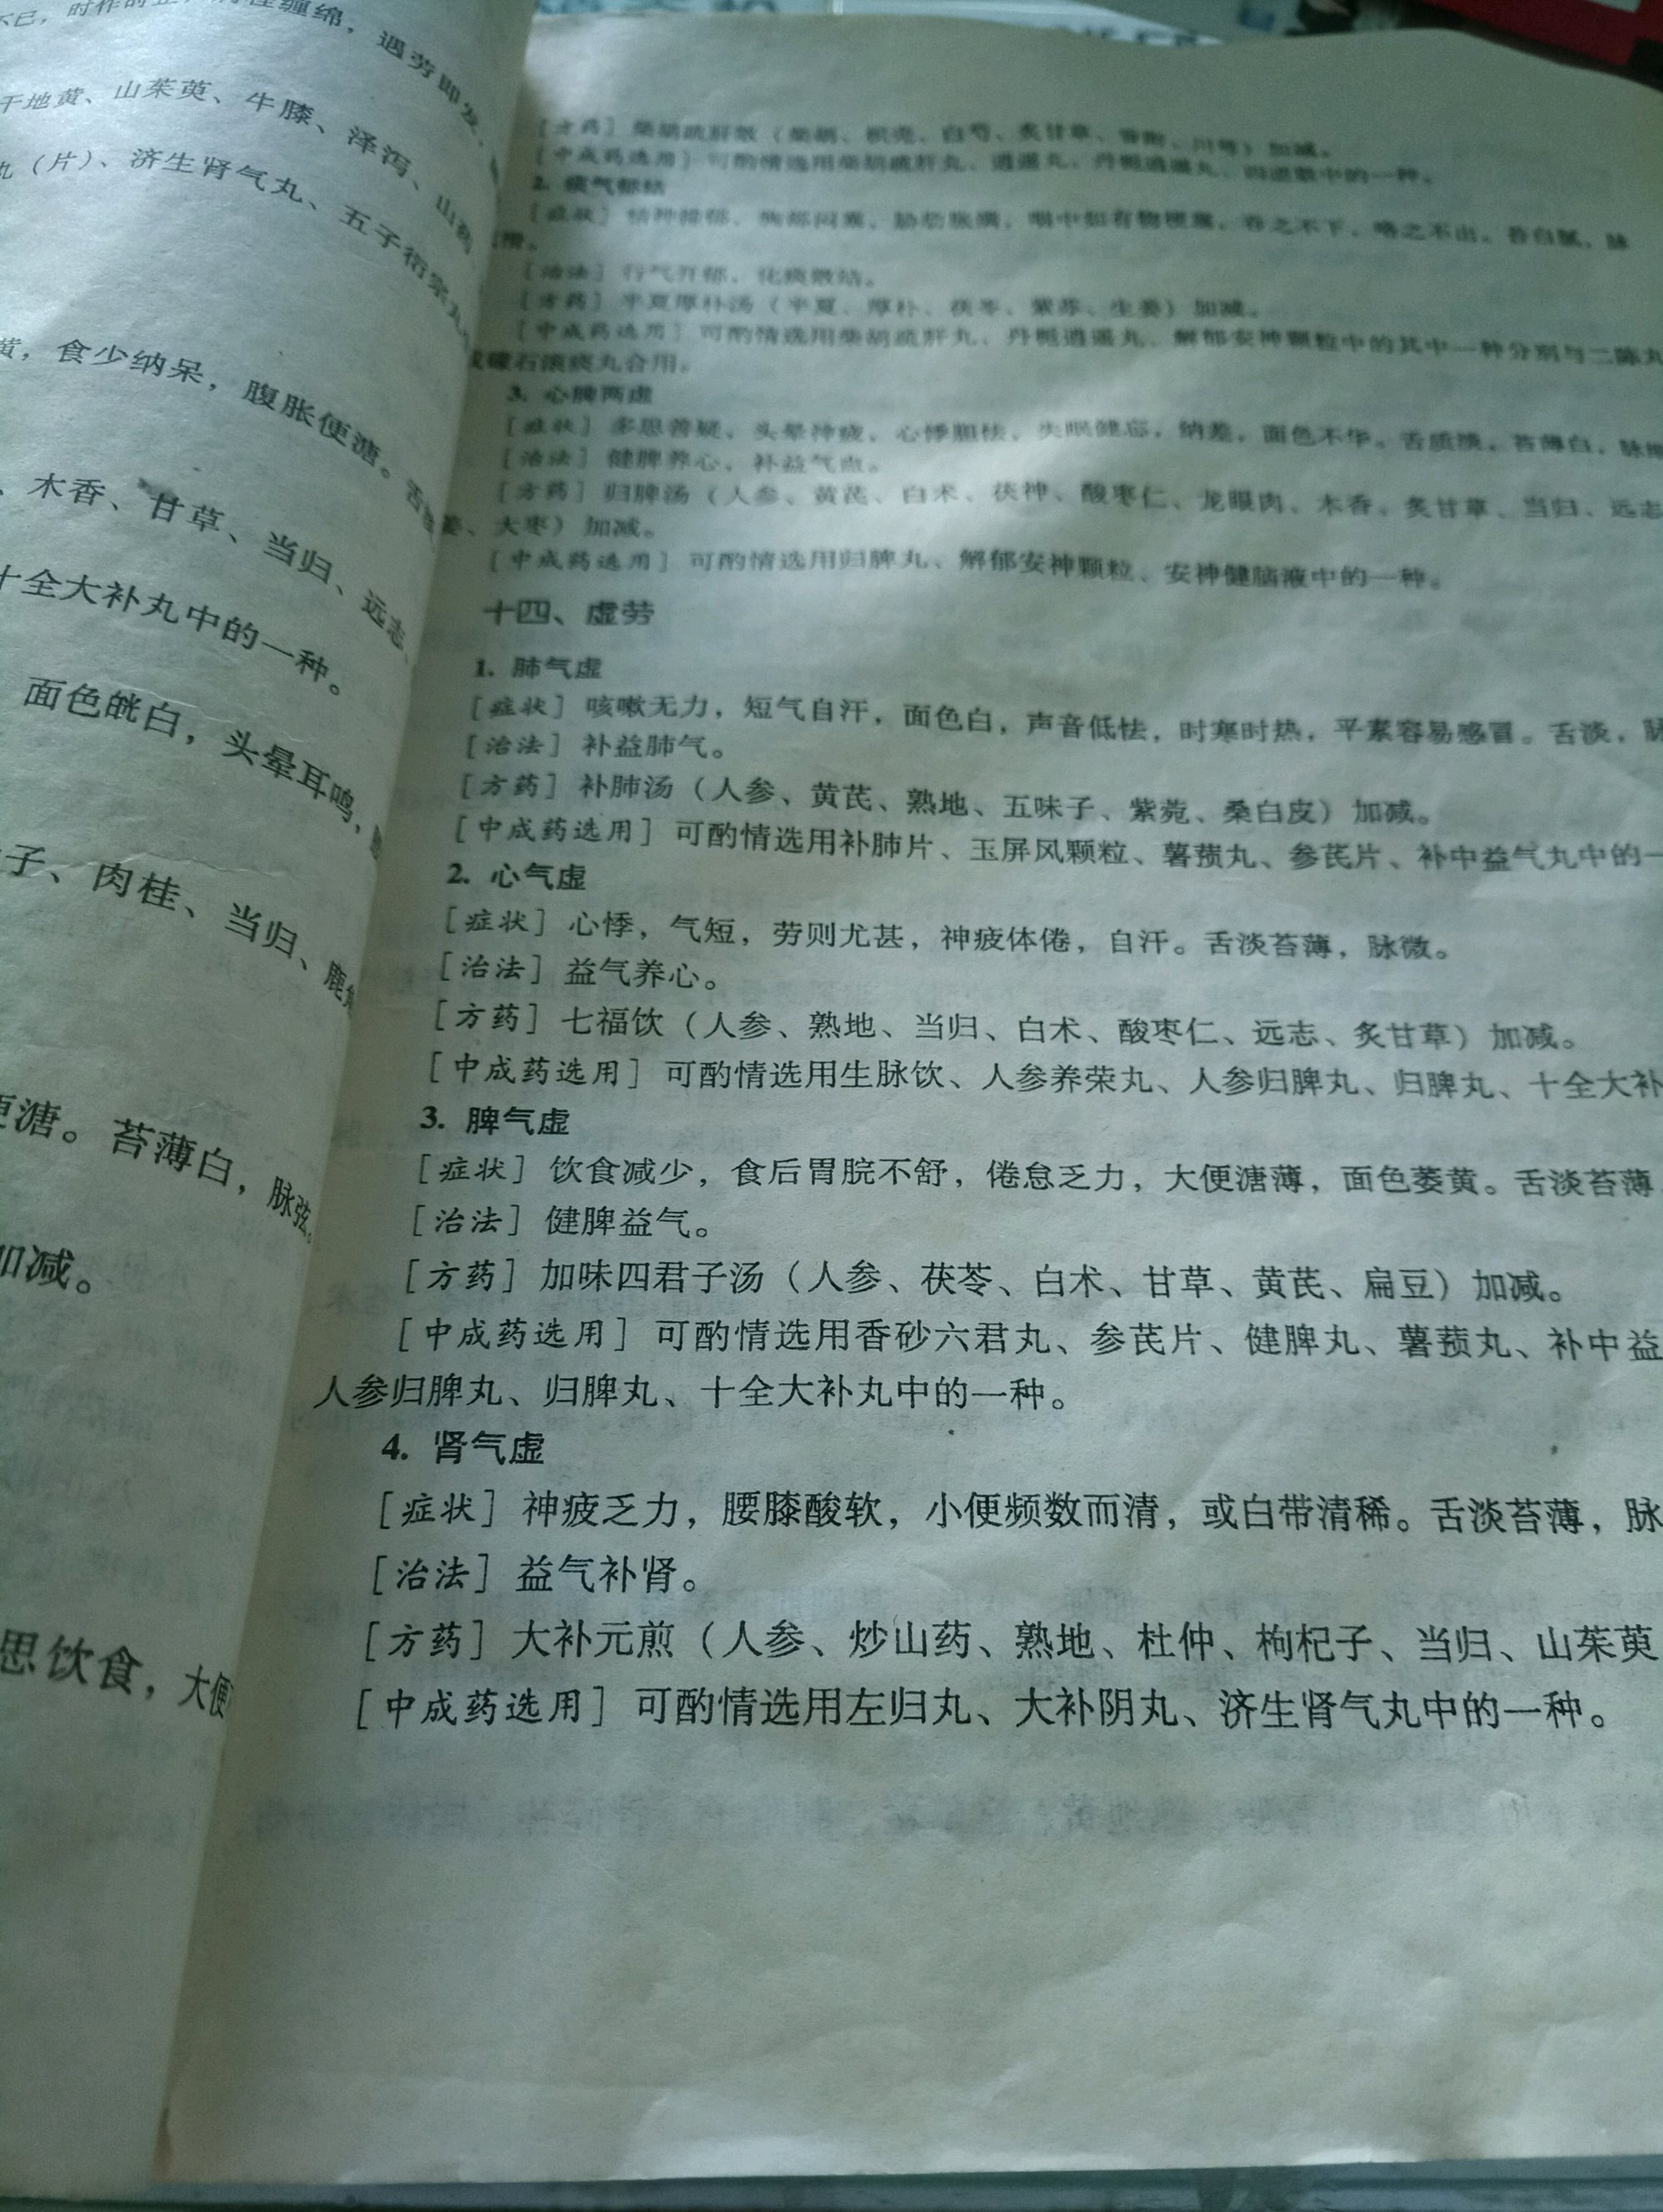 不已，时作时止，病程缠绵，遇劳即发，
干地黄、山茱萸、牛膝、泽泻、山药
丸（片）、济生肾气丸、五子衍宗丸
黄，食少纳呆，腹胀便溏。舌
、木香、甘草、当归、远志、
十全大补丸中的一种。
面色㿠白，头晕耳鸣，
子、肉桂、当归、鹿角
便溏。苔薄白，脉弦。
加减。
思饮食，大便
［方药］柴胡疏肝散（柴胡、枳壳、白芍、炙甘草、香附、川芎）加减。
［中成药选用］可酌情选用柴胡疏肝丸、逍遥丸、丹栀逍遥丸、四逆散中的一种。
2. 痰气郁结
［症状］精神抑郁，胸部闷塞，胁肋胀满，咽中如有物梗塞，吞之不下，咯之不出。苔白腻，脉
滑。
［治法］行气开郁，化痰散结。
［方药］半夏厚朴汤（半夏、厚朴、茯苓、紫苏、生姜）加减。
［中成药选用］可酌情选用柴胡疏肝丸、丹栀逍遥丸、解郁安神颗粒中的其中一种分别与二陈丸
或礞石滚痰丸合用。
3. 心脾两虚
［症状］多思善疑，头晕神疲，心悸胆怯，失眠健忘，纳差，面色不华。舌质淡，苔薄白，脉细
［治法］健脾养心，补益气血。
［方药］归脾汤（人参、黄芪、白术、茯神、酸枣仁、龙眼肉、木香、炙甘草、当归、远志
姜、大枣）加减。
［中成药选用］可酌情选用归脾丸、解郁安神颗粒、安神健脑液中的一种。
十四、虚劳
1. 肺气虚
［症状］咳嗽无力，短气自汗，面色白，声音低怯，时寒时热，平素容易感冒。舌淡，脉
［治法］补益肺气。
［方药］补肺汤（人参、黄芪、熟地、五味子、紫菀、桑白皮）加减。
［中成药选用］可酌情选用补肺片、玉屏风颗粒、薯蓣丸、参芪片、补中益气丸中的一
2. 心气虚
［症状］心悸，气短，劳则尤甚，神疲体倦，自汗。舌淡苔薄，脉微。
［治法］益气养心。
［方药］七福饮（人参、熟地、当归、白术、酸枣仁、远志、炙甘草）加减。
［中成药选用］可酌情选用生脉饮、人参养荣丸、人参归脾丸、归脾丸、十全大补
3. 脾气虚
［症状］饮食减少，食后胃脘不舒，倦怠乏力，大便溏薄，面色萎黄。舌淡苔薄
［治法］健脾益气。
［方药］加味四君子汤（人参、茯苓、白术、甘草、黄芪、扁豆）加减。
［中成药选用］可酌情选用香砂六君丸、参芪片、健脾丸、薯蓣丸、补中益
人参归脾丸、归脾丸、十全大补丸中的一种。
4. 肾气虚
［症状］神疲乏力，腰膝酸软，小便频数而清，或白带清稀。舌淡苔薄，脉
［治法］益气补肾。
［方药］大补元煎（人参、炒山药、熟地、杜仲、枸杞子、当归、山茱萸
［中成药选用］可酌情选用左归丸、大补阴丸、济生肾气丸中的一种。